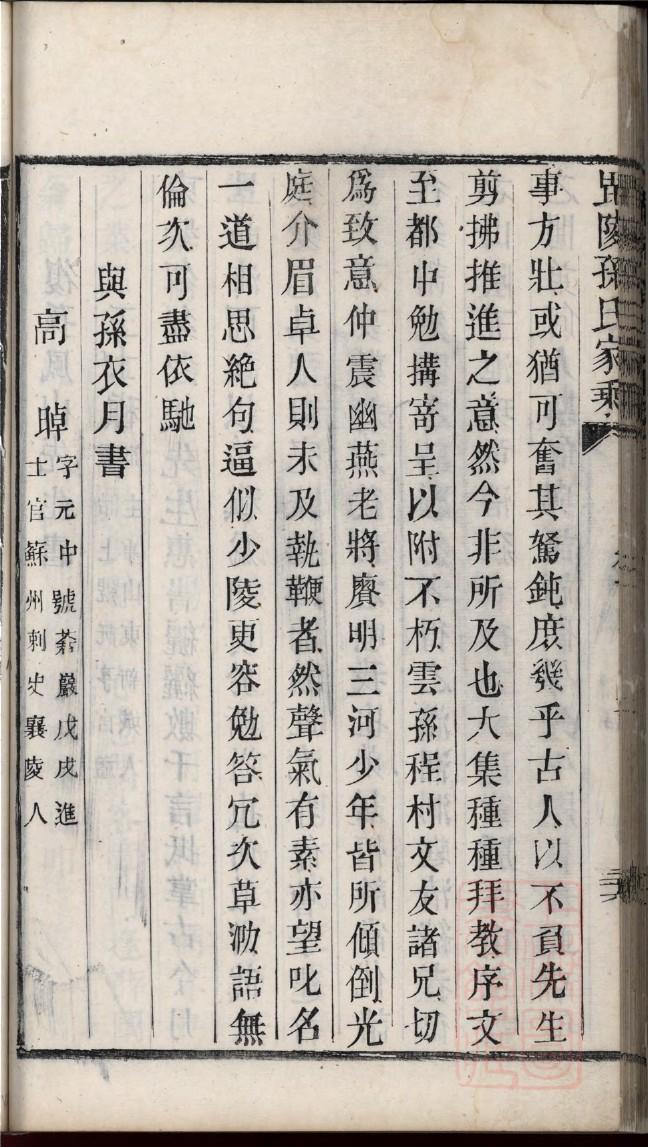 毘陵孫氏家乘
事方壯或猶可奮其駑鈍庶幾乎古人以不負先生
剪拂推進之意然今非所及也大集種種拜教序文
至都中勉搆寄呈以附不朽雲孫程村文友諸兄切
爲致意仲震幽燕老將賡明三河少年皆所傾倒光
庭介眉卓人則未及執鞭者然聲氣有素亦望叱名
一道相思絶句逼似少陵更容勉答冗次草泐語無
倫次可盡依馳
與孫衣月書
高 㬀
字元中 號蒼巖戊戌進
士官蘇州刺史襄陵人